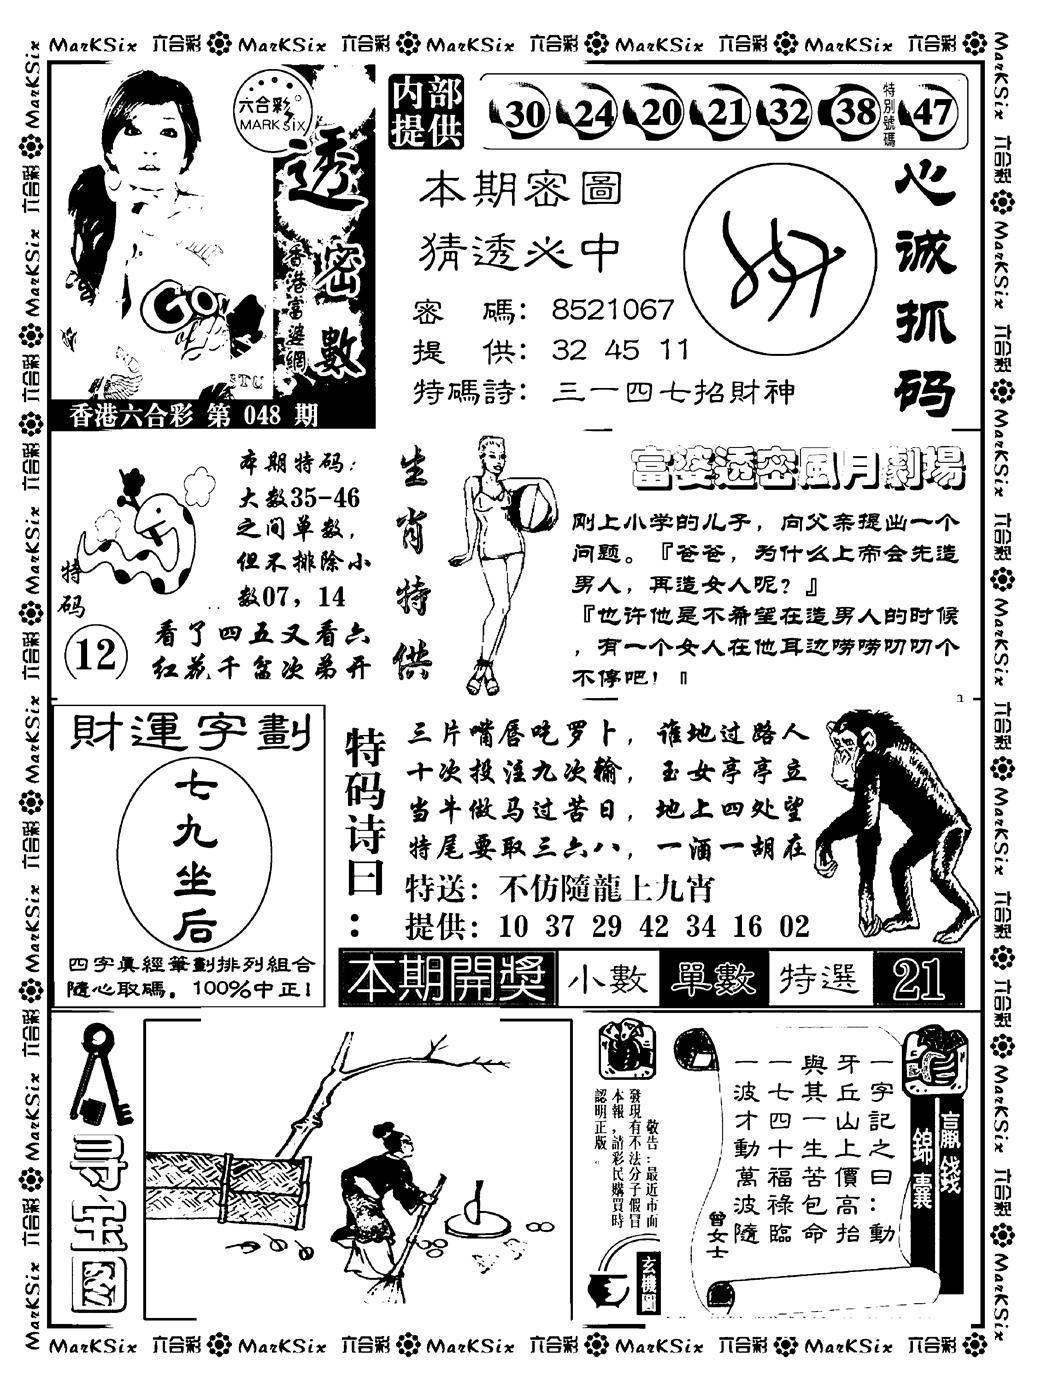 MarKSix 六合彩 MarKSix 六合彩 MarKSix 六合彩 MarKSix 六合彩 MarKSix 六合彩
六合彩
MARK SIX
透密數
香港富婆網
香港六合彩 第 048 期
内部提供
30 24 20 21 32 38 特別號碼 47
本期密圖
猜透必中
密 碼：8521067
提 供：32 45 11
特碼詩：三一四七招財神
心诚抓码
本期特码：
大数35-46
之间单数，
但不排除小
数07，14
特码
12
看了四五又看六
红花千盆次弟开
生肖特供
富婆透密風月劇場
刚上小学的儿子，向父亲提出一个
问题。『爸爸，为什么上帝会先造
男人，再造女人呢？』
『也许他是不希望在造男人的时候
，有一个女人在他耳边唠唠叨叨个
不停吧！』
財運字劃
七九坐后
四字真經筆劃排列組合
隨心取碼，100%中正！
特码诗曰：
三片嘴唇吃罗卜，谁地过路人
十次投注九次输，玉女亭亭立
当牛做马过苦日，地上四处望
特尾要取三六八，一酒一胡在
特送：不仿隨龍上九宵
提供：10 37 29 42 34 16 02
本期開獎 小數 單數 特選 21
寻宝图
敬告：最近市面
發現有不法分子假冒
本報，請彩民購買時
認明正版。
玄機圖
贏錢錦囊
一字記之曰：動
牙丘山上價高抬
與其一生苦包命
一七四十福祿臨
一波才動萬波隨
曾女士
MarKSix 六合彩 MarKSix 六合彩 MarKSix 六合彩 MarKSix 六合彩 MarKSix 六合彩